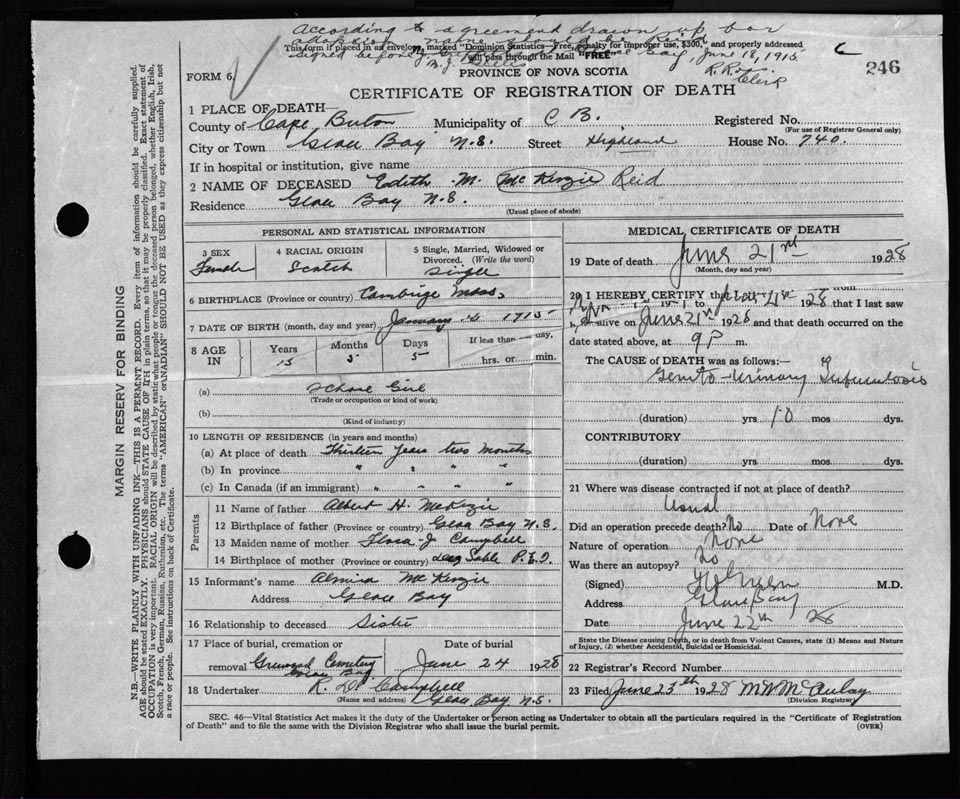 According to agreement drawn up for
adoption name should be Reid
This form if placed in an envelope, marked "Dominion Statistics—Free, penalty for improper use, $300," and properly addressed
signed before Glace Bay, June 18, 1915
will pass through the Mail "FREE"
M. J.
R. Ross
Clerk
C
246
FORM 6.
PROVINCE OF NOVA SCOTIA
CERTIFICATE OF REGISTRATION OF DEATH
1 PLACE OF DEATH—
County of Cape Breton Municipality of C B. Registered No.
(For use of Registrar General only)
City or Town Glace Bay N.S. Street Highland House No. 740.
If in hospital or institution, give name
2 NAME OF DECEASED Edith M. McKenzie Reid
Residence Glace Bay N.S.
(Usual place of abode)
PERSONAL AND STATISTICAL INFORMATION
3 SEX
Female
4 RACIAL ORIGIN
Scotch
5 Single, Married, Widowed or
Divorced. (Write the word)
Single
6 BIRTHPLACE (Province or country) Cambrige Mass
7 DATE OF BIRTH (month, day and year) January 1915
8 AGE IN
Years
13
Months
5
Days
5
If less than day,
hrs. or min.
(a) School Girl
(Trade or occupation or kind of work)
(b)
(Kind of industry)
10 LENGTH OF RESIDENCE (in years and months)
(a) At place of death Thirteen Years two Months
(b) In province " " "
(c) In Canada (if an immigrant) " " "
Parents
11 Name of father Albert H. McKenzie
12 Birthplace of father (Province or country) Glace Bay N.S.
13 Maiden name of mother Flora J Campbell
14 Birthplace of mother (Province or country) Sable P.E.I.
15 Informant's name Almira McKenzie
Address Glace Bay
16 Relationship to deceased Sister
17 Place of burial, cremation or
removal Greenwood Cemetery
Glace Bay
Date of burial
June 24 1928
18 Undertaker R. D. Campbell
(Name and address) Glace Bay N.S.
MEDICAL CERTIFICATE OF DEATH
19 Date of death June 21st 1928
(Month, day and year)
20 I HEREBY CERTIFY that from
to 21st 1928 that I last saw
h alive on June 21st 1928 and that death occurred on the
date stated above, at 9 P m.
The CAUSE of DEATH was as follows:—
Genito-Urinary Tuberculosis
(duration) yrs 10 mos dys.
CONTRIBUTORY
(duration) yrs. mos. dys.
21 Where was disease contracted if not at place of death?
Usual
Did an operation precede death? No Date of None
Nature of operation None
Was there an autopsy? No
(Signed) M.D.
Address Glace Bay
Date June 22th 28
State the Disease causing Death, or in death from Violent Causes, state (1) Means and Nature
of Injury, (2) whether Accidental, Suicidal or Homicidal.
22 Registrar's Record Number
23 Filed June 23th 1928 McAulay
(Division Registrar)
SEC. 46—Vital Statistics Act makes it the duty of the Undertaker or person acting as Undertaker to obtain all the particulars required in the "Certificate of Registration
of Death" and to file the same with the Division Registrar who shall issue the burial permit.
(OVER)
MARGIN RESERV FOR BINDING
N.B.—WRITE PLAINLY WITH UNFADING INK—THIS IS A PERMENT RECORD. Every item of information should be carefully supplied.
AGE should be stated EXACTLY. PHYSICIANS should STATE CAUSE OF DTH in plain terms, so that it may be properly classified. Exact statement of
OCCUPATION is very important. RACIAL ORIGIN will be described by stating what people or tongue the deceased person belonged, whether English, Irish,
Scotch, French, German, Russian, Ruthenian, etc. The terms "AMERICAN" or "ANADIAN" SHOULD NOT BE USED as they express citizenship but not
a race or people. See instructions on back of Certificate.